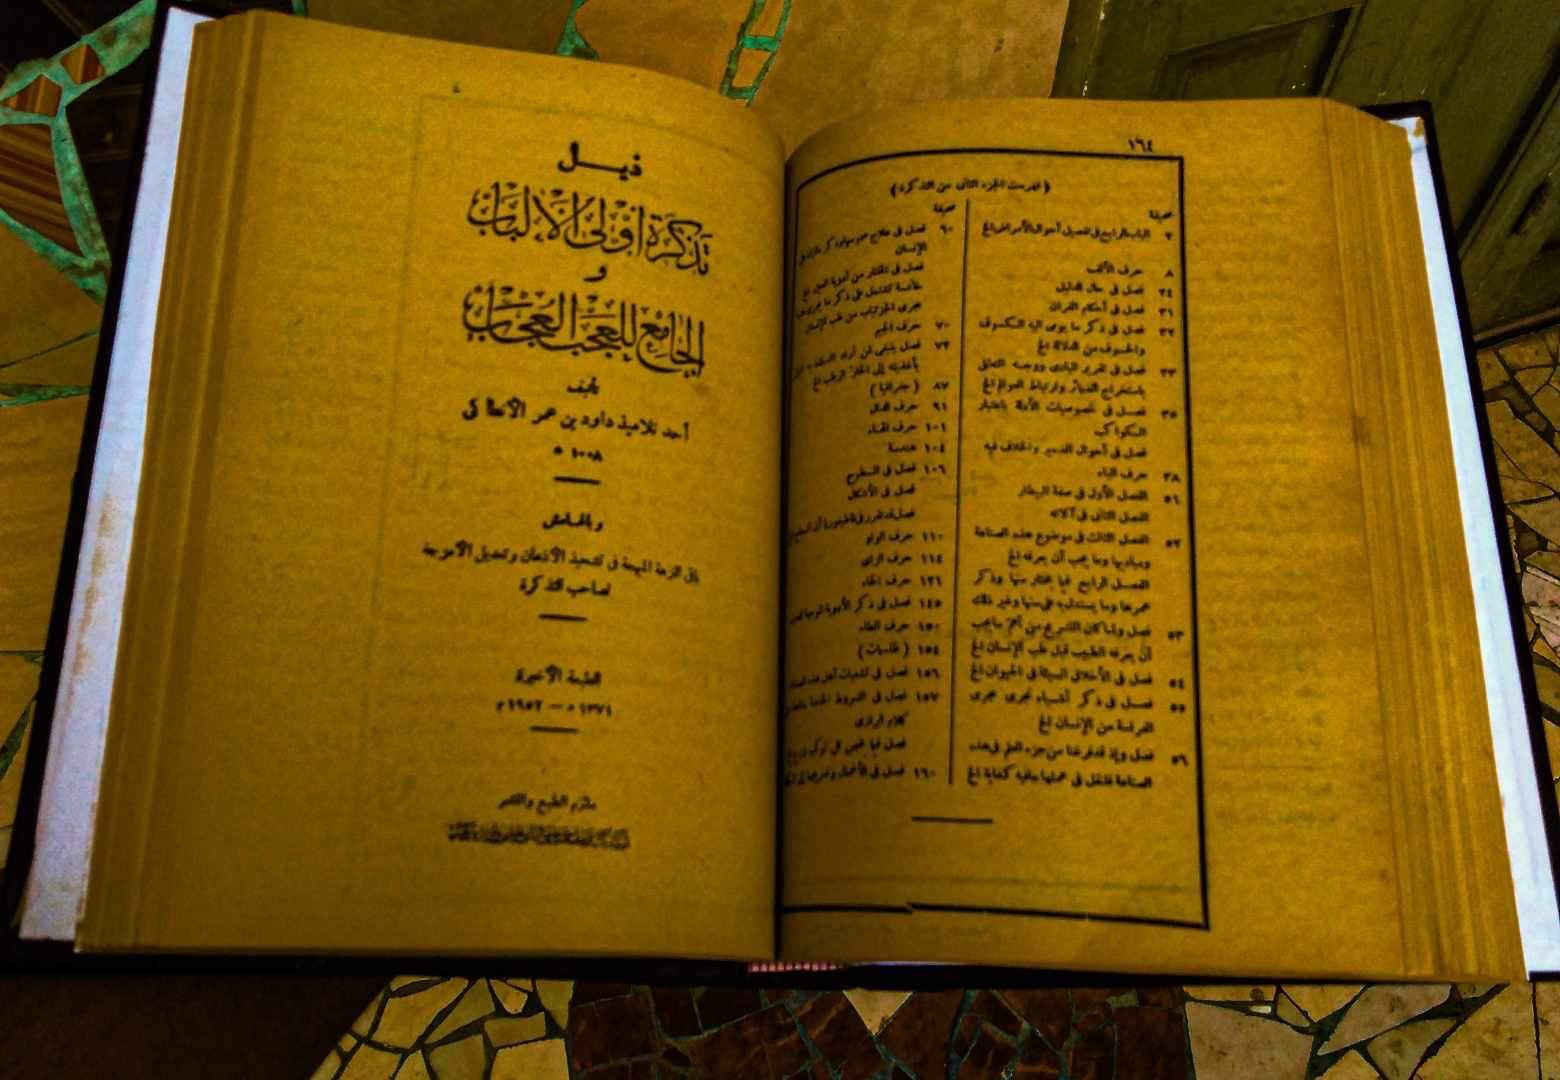 ١٦٤
( فهرست الجزء الثاني من التذكرة )
صحيفة
٢ الباب الرابع في تفصيل أحوال الأمراض الخ
٨ حرف الألف
٢٤ فصل في حال الدليل
٣١ فصل في أحكام القران
٣٢ فصل في ذكر ما يومى اليه الكسوف
والخسوف من الدلالة الخ
٣٣ فصل في تقرير المبادى ووجه التعلق
باستخراج الضمائر وارتباط العوالم الخ
٣٥ فصل في خصوصيات الأدلة باعتبار
الكواكب
فصل في أحوال الضمير والخلاف فيه
٣٨ حرف الباء
٥١ الفصل الأول في صفة البيطار
الفصل الثاني في آلاته
٥٢ الفصل الثالث في موضوع هذه الصناعة
ومباديها وما يجب أن يعرفه الخ
الفصل الرابع فيما يختار منها وذكر
عمرها وما يستدل به على سنها وغير ذلك
٥٣ فصل ولما كان التشريح من أهم ما يجب
أن يعرفه الطبيب قبل طب الإنسان الخ
٥٤ فصل في الأخلاق السيئة في الحيوان الخ
٥٥ فصل في ذكر أشياء تجرى مجرى
الفراسة من الإنسان الخ
٥٦ فصل وإذ قد فرغنا من جزء العلم في هذه
الصناعة فلنقل في عملها بما فيه كفاية الخ
صحيفة
٦٠ فصل في علاج
الإنسان
فصل في المختار من أدوية العين الخ
خاتمة تشتمل على ذكر ما يجرى
مجرى الجزئيات من طب الإنسان
٧٠ حرف الجيم
٧٣ فصل ينبغى لمن أراد
٨٧ ( جغرافيا )
٩١ حرف الدال
١٠١ حرف الهاء
١٠٤ هندسة
١٠٦ فصل في السطوح
فصل في الأشكال
١١٠ حرف الواو
١١٤ حرف الزاى
١٢١ حرف الحاء
١٤٥ فصل في ذكر الأدوية
١٥٠ حرف الطاء
١٥٤ ( طلسمات )
١٥٦ فصل في تشعبات أهل هذه
١٥٧ فصل في الشروط
كلام الرازى
١٦٠ فصل في الأعمال
ذيل
تذكرة أولى الألباب
و
الجامع للعجب العجاب
تأليف
أحد تلاميذ داود بن عمر الأنطاكى
١٠٠٨ ه
وبالهامش
باقى النزهة المبهجة في تشحيذ الأذهان وتعديل الأمزجة
لصاحب التذكرة
الطبعة الأخيرة
١٣٧١ ه — ١٩٥٢ م
ملتزم الطبع والنشر